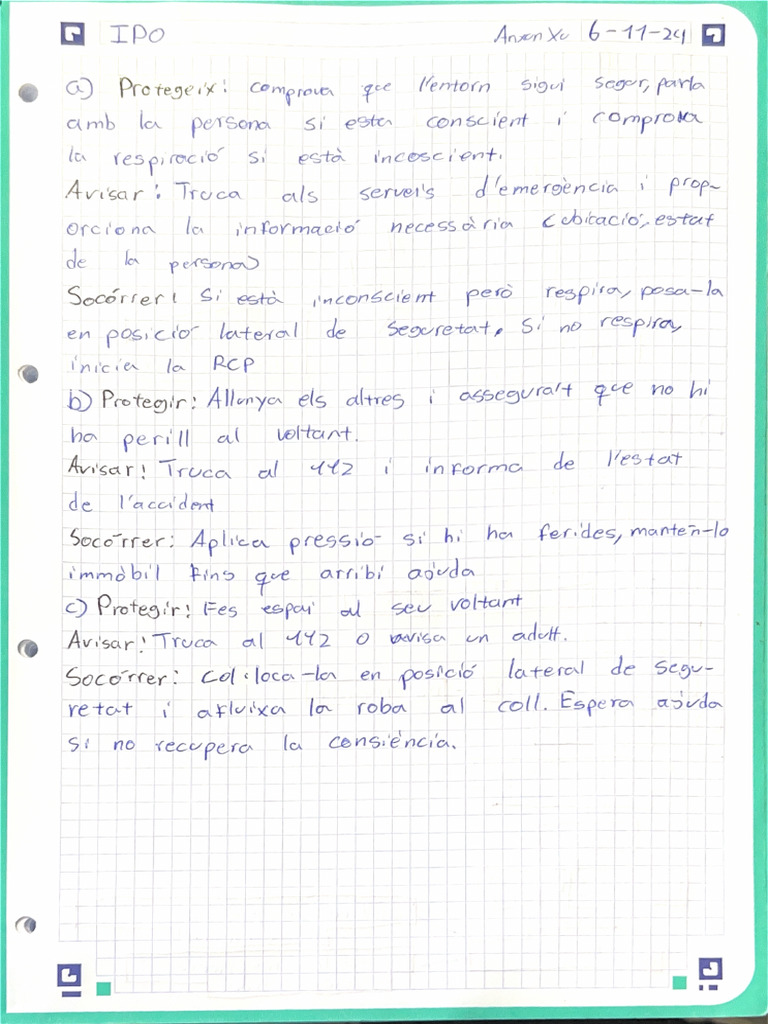 IPO Anxen Xu 6-11-24
a) Protegeix: comprova que l'entorn sigui segur, parla
amb la persona si esta conscient i comprova
la respiració si està incoscient.
Avisar: Truca als serveis d'emergència i prop-
orciona la informació necessària (ubicació, estat
de la persona)
Socórrer: Si està inconscient però respira, posa-la
en posició lateral de seguretat. Si no respira,
inicia la RCP
b) Protegir: Allunya els altres i assegura't que no hi
ha perill al voltant.
Avisar: Truca al 112 i informa de l'estat
de l'accident
Socórrer: Aplica pressió si hi ha ferides, mantén-lo
immòbil fins que arribi ajuda
c) Protegir: Fes espai al seu voltant
Avisar: Truca al 112 o avisa un adult.
Socórrer: Col·loca-la en posició lateral de segu-
retat i afluixa la roba al coll. Espera ajuda
si no recupera la consiència.